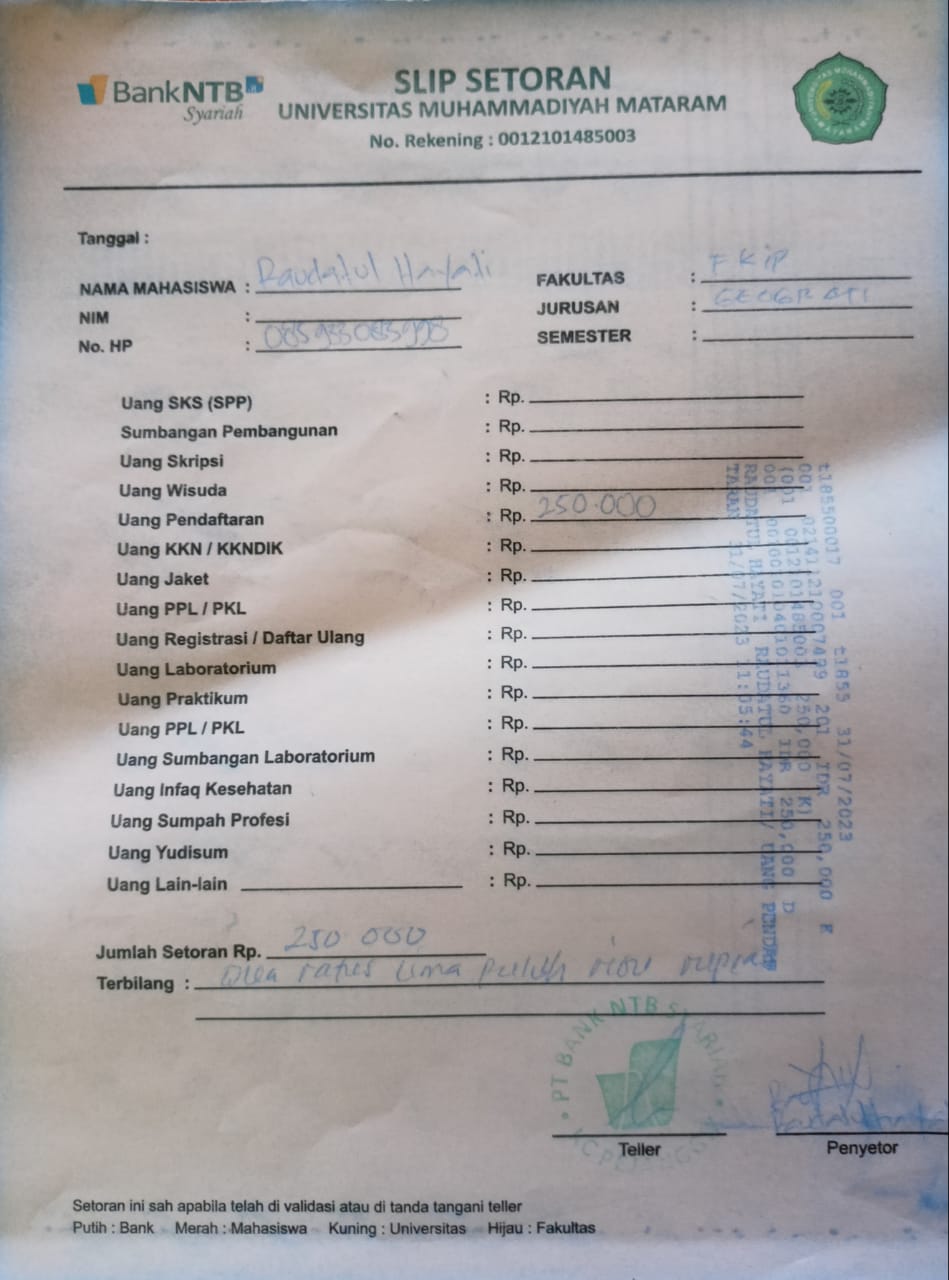 BankNTB
Syariah
SLIP SETORAN
UNIVERSITAS MUHAMMADIYAH MATARAM
No. Rekening : 0012101485003
Tanggal :
NAMA MAHASISWA : Raudatul Hayati
NIM :
No. HP : 085933083998
FAKULTAS : FKIP
JURUSAN : GEOGRAFI
SEMESTER :
Uang SKS (SPP) : Rp.
Sumbangan Pembangunan : Rp.
Uang Skripsi : Rp.
Uang Wisuda : Rp.
Uang Pendaftaran : Rp. 250.000
Uang KKN / KKNDIK : Rp.
Uang Jaket : Rp.
Uang PPL / PKL : Rp.
Uang Registrasi / Daftar Ulang : Rp.
Uang Laboratorium : Rp.
Uang Praktikum : Rp.
Uang PPL / PKL : Rp.
Uang Sumbangan Laboratorium : Rp.
Uang Infaq Kesehatan : Rp.
Uang Sumpah Profesi : Rp.
Uang Yudisum : Rp.
Uang Lain-lain : Rp.
t185500017 001 t1855 31/07/2023
001 021411210007499 201 IDR 250,000 K
(001 0012101485003 250,000 K)
001 IDR 250,000 D
RAUDATUL HAYATI RAUDATUL HAYATI/ UANG PENDAF
TARAN 31/07/2023 11:05:44
Jumlah Setoran Rp. 250 000
Terbilang : Dua ratus lima puluh ribu rupiah
PT BANK NTB SYARIAH
Teller
Penyetor
Setoran ini sah apabila telah di validasi atau di tanda tangani teller
Putih : Bank Merah : Mahasiswa Kuning : Universitas Hijau : Fakultas